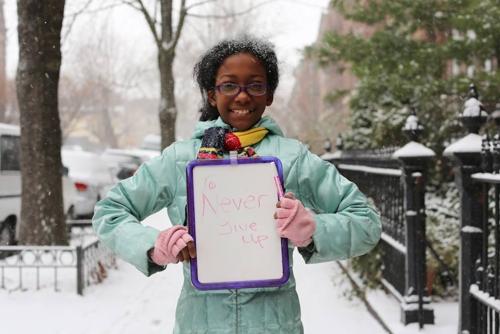 Never
give
up